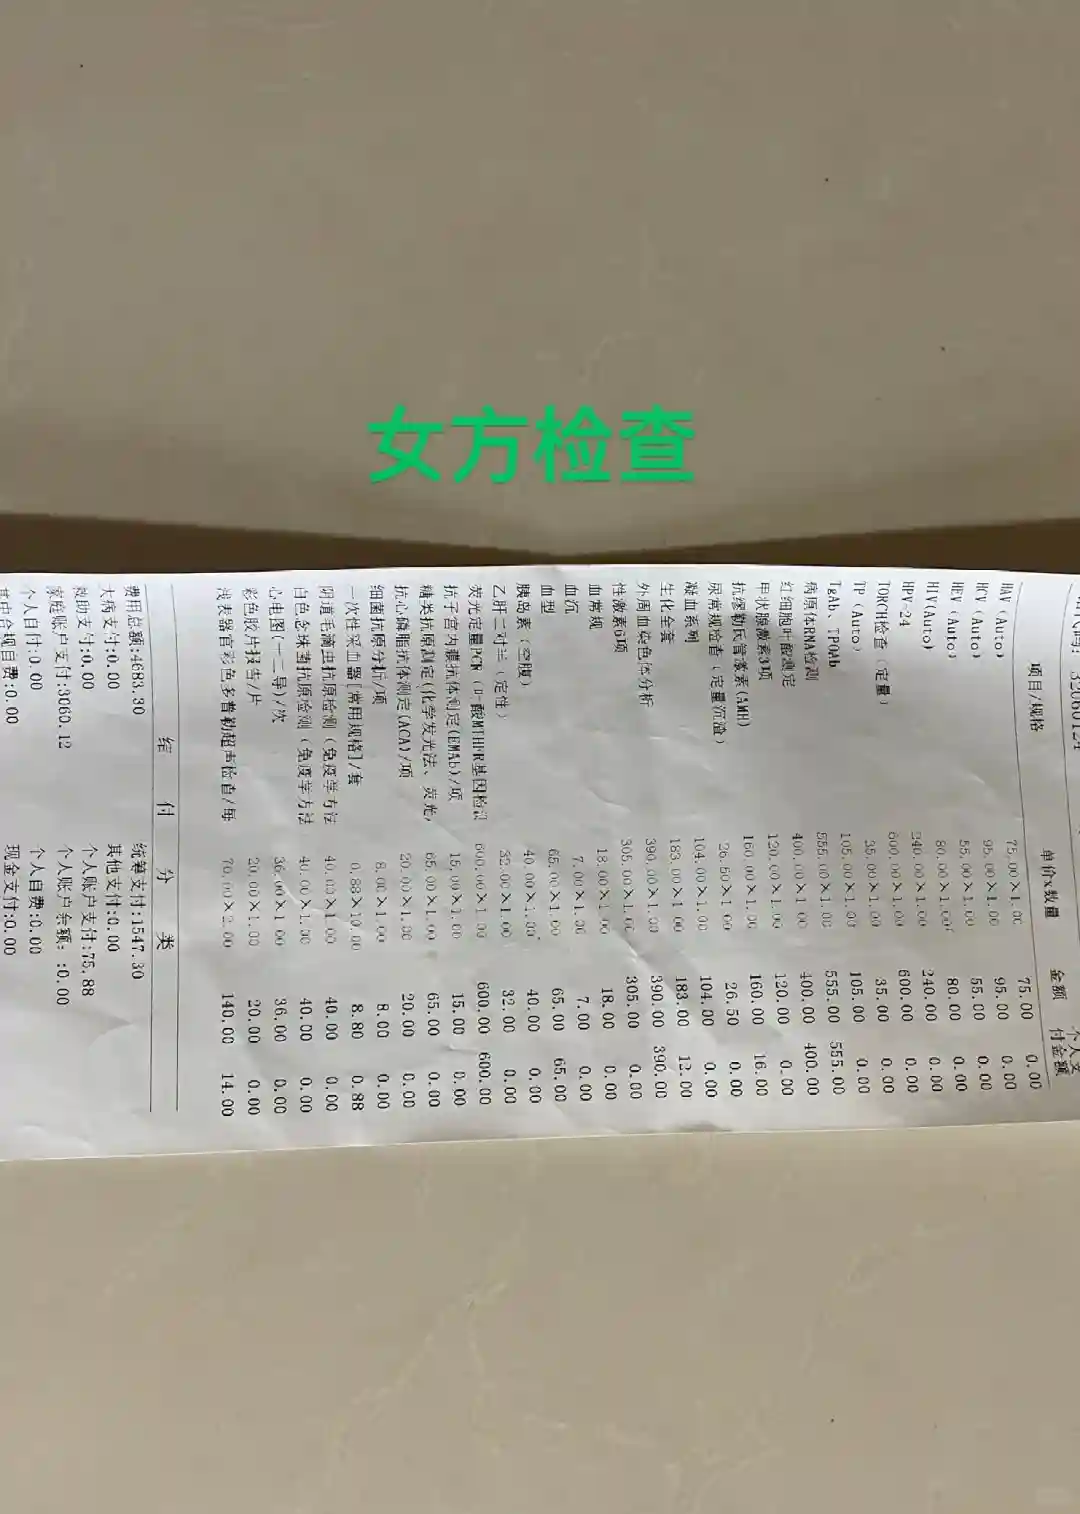 女方检查
项目/规格 单价x数量 金额 个人支付金额
HAV（Auto） 75.00×1.00 75.00 0.00
HCV（Auto） 95.00×1.00 95.00 0.00
HEV（Auto） 55.00×1.00 55.00 0.00
HIV(Auto) 80.00×1.00 80.00 0.00
HPV-24 240.00×1.00 240.00 0.00
TORCH检查（定量） 600.00×1.00 600.00 0.00
TP（Auto） 35.00×1.00 35.00 0.00
TgAb、TPOAb 105.00×1.00 105.00 0.00
病原体RNA检测 555.00×1.00 555.00 555.00
红细胞叶酸测定 400.00×1.00 400.00 400.00
甲状腺激素3项 120.00×1.00 120.00 0.00
抗缪勒氏管激素(AMH) 160.00×1.00 160.00 16.00
尿常规检查（定量沉渣） 26.50×1.00 26.50 0.00
凝血系列 104.00×1.00 104.00 0.00
生化全套 183.00×1.00 183.00 12.00
外周血染色体分析 390.00×1.00 390.00 390.00
性激素6项 305.00×1.00 305.00 0.00
血常规 18.00×1.00 18.00 0.00
血沉 7.00×1.00 7.00 0.00
血型 65.00×1.00 65.00 65.00
胰岛素（空腹） 40.00×1.00 40.00 0.00
乙肝三对半（定性） 32.00×1.00 32.00 0.00
荧光定量PCR（叶酸MTHFR基因检测 600.00×1.00 600.00 600.00
抗子宫内膜抗体测定(EMAb)/项 15.00×1.00 15.00 0.00
糖类抗原测定(化学发光法、荧光, 65.00×1.00 65.00 0.00
抗心磷脂抗体测定(ACA)/项 20.00×1.00 20.00 0.00
细菌抗原分析/项 8.00×1.00 8.00 0.00
一次性采血器[常用规格]/套 0.88×10.00 8.80 0.88
阴道毛滴虫抗原检测（免疫学方法 40.00×1.00 40.00 0.00
白色念珠菌抗原检测（免疫学方法 40.00×1.00 40.00 0.00
心电图(十二导)/次 36.00×1.00 36.00 0.00
彩色胶片报告/片 20.00×1.00 20.00 0.00
浅表器官彩色多普勒超声检查/每 70.00×2.00 140.00 14.00
结 付 分 类
费用总额:4683.30 统筹支付:1547.30
大病支付:0.00 其他支付:0.00
救助支付:0.00 个人账户支付:75.88
家庭账户支付:3060.12 个人账户余额:0.00
个人自付:0.00 个人自费:0.00
其中合规自费:0.00 现金支付:0.00